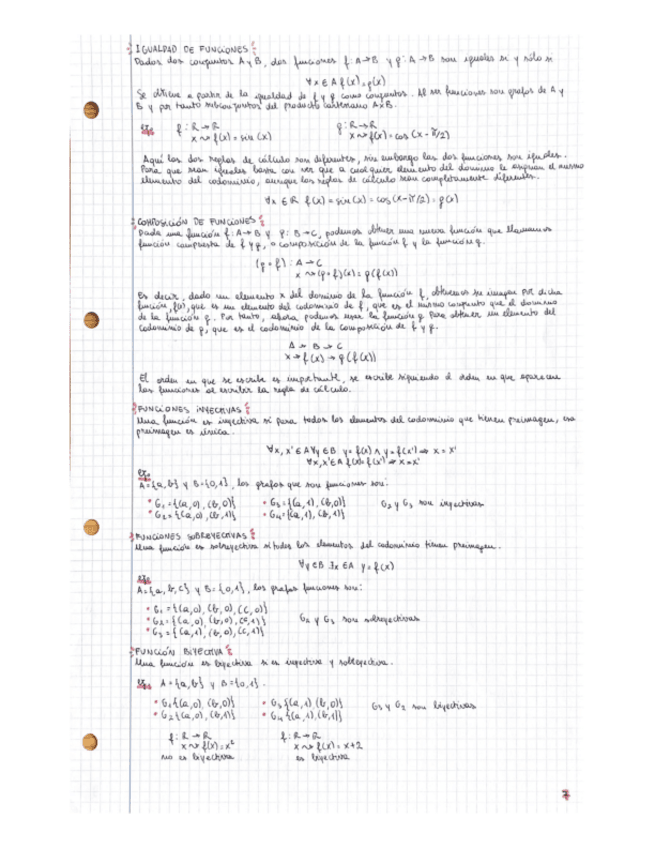 IGUALDAD DE FUNCIONES
Dados dos conjuntos A y B, dos funciones f: A→B y g: A→B son iguales si y sólo si
∀x ∈ A f(x) = g(x)
Se obtiene a partir de la igualdad de f y g como conjuntos. Al ser funciones son grafos de A y
B y por tanto subconjuntos del producto cartesiano AxB.
ej. f: R→R g: R→R
x ⇝ f(x) = sin(x) x ⇝ f(x) = cos(x - π/2)
Aquí las dos reglas de cálculo son diferentes, sin embargo las dos funciones son iguales.
Para que sean iguales basta con ver que a cualquier elemento del dominio le asignan el mismo
elemento del codominio, aunque las reglas de cálculo sean completamente diferentes.
∀x ∈ R f(x) = sin(x) = cos(x - π/2) = g(x)
COMPOSICIÓN DE FUNCIONES
Dada una función f: A→B y g: B→C, podemos obtener una nueva función que llamamos
función compuesta de f y g, o composición de la función f y la función g.
(g∘f): A→C
x ⇝ (g∘f)(x) = g(f(x))
Es decir, dado un elemento x del dominio de la función f, obtenemos su imagen por dicha
función, f(x), que es un elemento del codominio de f, que es el mismo conjunto que el dominio
de la función g. Por tanto, ahora podemos usar la función g para obtener un elemento del
codominio de g, que es el codominio de la composición de f y g.
A → B → C
x → f(x) → g(f(x))
El orden en que se escribe es importante, se escribe siguiendo el orden en que aparecen
las funciones al escribir la regla de cálculo.
FUNCIONES INYECTIVAS
Una función es inyectiva si para todos los elementos del codominio que tienen preimagen, esa
preimagen es única.
∀x, x' ∈ A ∀y ∈ B y = f(x) ∧ y = f(x') ⇒ x = x'
∀x, x' ∈ A f(x) = f(x') ⇒ x = x'
ej.
A = {a, b} y B = {0, 1}, los grafos que son funciones son:
• G1 = {(a, 0), (b, 0)} • G3 = {(a, 1), (b, 0)} G2 y G3 son inyectivas
• G2 = {(a, 0), (b, 1)} • G4 = {(a, 1), (b, 1)}
FUNCIONES SOBREYECTIVAS
Una función es sobreyectiva si todos los elementos del codominio tienen preimagen.
∀y ∈ B ∃x ∈ A y = f(x)
ej.
A = {a, b, c} y B = {0, 1}, los grafos funciones son:
• G1 = {(a, 0), (b, 0), (c, 0)}
• G2 = {(a, 0), (b, 0), (c, 1)} G2 y G3 son sobreyectivas
• G3 = {(a, 1), (b, 0), (c, 1)}
FUNCIÓN BIYECTIVA
Una función es biyectiva si es inyectiva y sobreyectiva.
ej. A = {a, b} y B = {0, 1}.
• G1 {(a, 0), (b, 0)} • G3 {(a, 1), (b, 0)} G3 y G2 son biyectivas
• G2 {(a, 0), (b, 1)} • G4 {(a, 1), (b, 1)}
f: R→R f: R→R
x ⇝ f(x) = x² x ⇝ f(x) = x+2
no es biyectiva es biyectiva
7